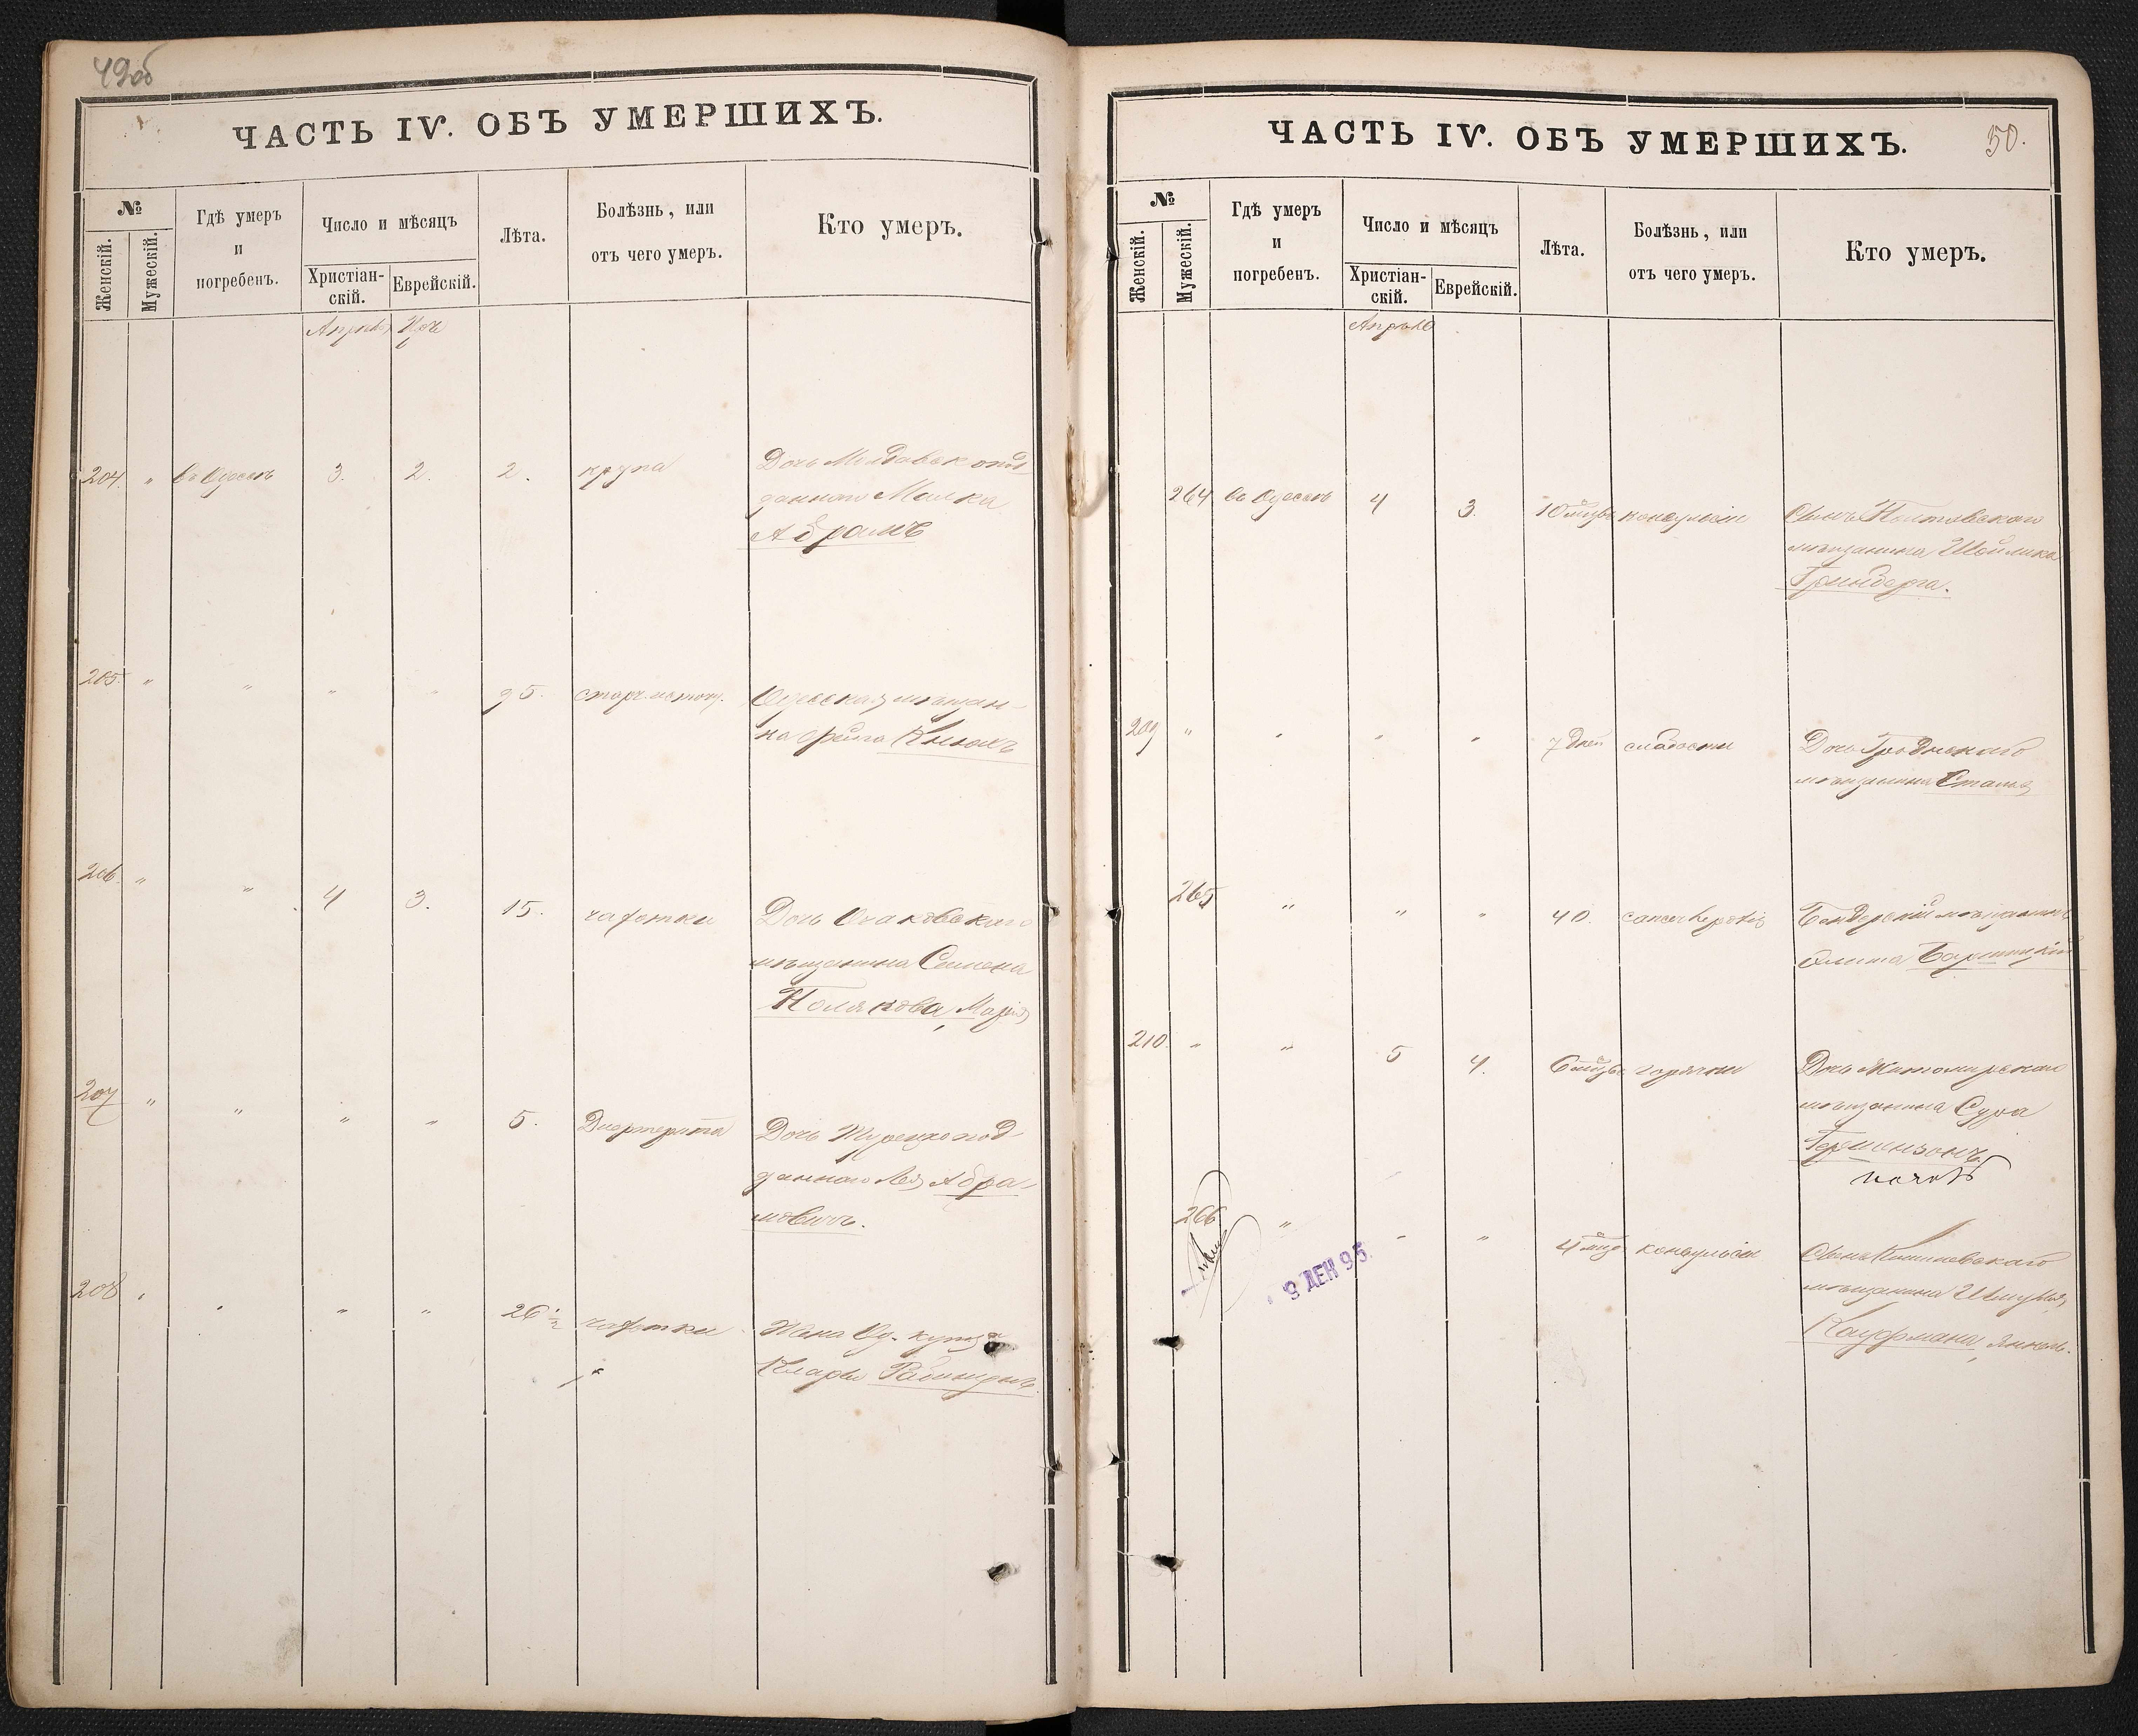 49об
ЧАСТЬ IV. ОБЪ УМЕРШИХЪ.
№
Женскій.
Мужескій.
Гдѣ умеръ
и
погребенъ.
Число и мѣсяцъ
Христіан-
скій.
Еврейскій.
Лѣта.
Болѣзнь, или
отъ чего умеръ.
Кто умеръ.
Апрѣль
204. " въ Одессѣ 3. 2. 2. крупа Дочь Молдавск. под
даннаго Малка
Абрамъ
205. " " " " 95. Одесская мѣщан-
ка Фейга
206. " " 4 3. 15. чахотки Дочь Очаковскаго
мѣщанина Семена
Полякова, Марія
207 " " " " 5. Дифтерита Дочь Турецко под
даннаго Лея Абра-
мовичъ.
208 " " " " 26 ½ чахотки Жена Од. купца
Клара
ЧАСТЬ IV. ОБЪ УМЕРШИХЪ.
50.
№
Женскій.
Мужескій.
Гдѣ умеръ
и
погребенъ.
Число и мѣсяцъ
Христіан-
скій.
Еврейскій.
Лѣта.
Болѣзнь, или
отъ чего умеръ.
Кто умеръ.
Апрѣль
264 въ Одессѣ 4 3. 10 мѣсяц. конвульсіи Сынъ Полтавскаго
мѣщанина Шойлика
Гринберга.
209 " " " " 7 дней слабости Дочь Гродненскаго
мѣщанина
265 " " " 40. cancer hepatis Бендерскій мѣщанинъ
210. " " 5 4. 6 мѣсяц. горячки Дочь Житомирскаго
мѣщанина Сура
Гершензонъ
266 " " " 4 мѣс. конвульсіи Сынъ Кишиневскаго
мѣщанина Шмуля
Кауфмана, Янкель.
9 ДЕК 95.